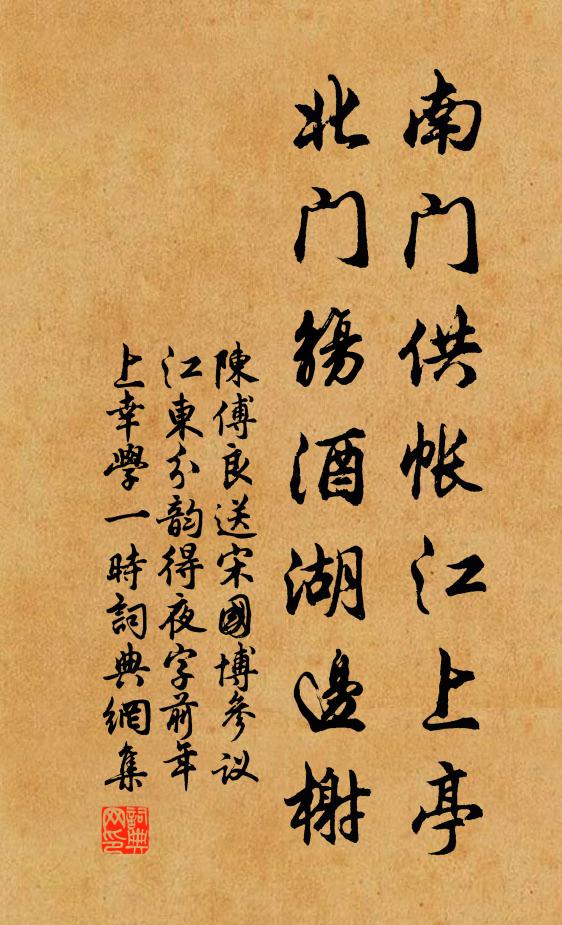 南门供帐江上亭
北门觞酒湖邊榭
陳傅良送宋國博參议
江東分韵得夜字前年
上幸學一時詞典網集
詞典网印